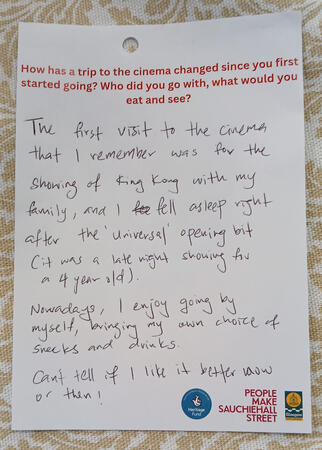 How has a trip to the cinema changed since you first
started going? Who did you go with, what would you
eat and see?
The first visit to the cinema
that I remember was for the
showing of King Kong with my
family, and I fell asleep right
after the 'Universal' opening bit
(it was a late night showing for
a 4 year old).
Nowadays, I enjoy going by
myself, bringing my own choice of
snacks and drinks.
Can't tell if I like it better now
or then!
Heritage
Fund
PEOPLE
MAKE
SAUCHIEHALL
STREET